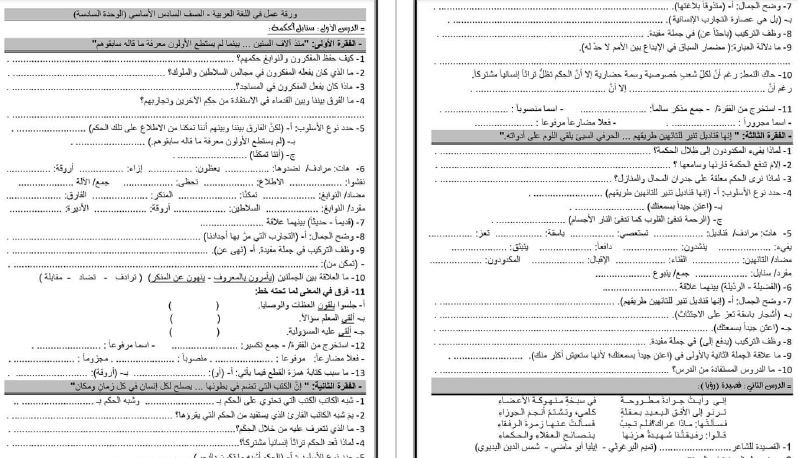 ورقة عمل في اللغة العربية - الصف السادس الأساسي (الوحدة السادسة)
= الدرس الأول: سنابل الحكمة:
- الفقرة الأولى: "منذ آلاف السنين ... بينما لم يستطع الأولون معرفة ما قاله سابقوهم"
1- كيف حفظ المفكرون والنوابغ حكمهم؟
2- ما الذي كان يفعله المفكرون في مجالس السلاطين والملوك؟
3- ماذا كان يفعل المفكرون في المساجد؟
4- ما الفرق بيننا وبين القدماء في الاستفادة من حكم الآخرين وتجاربهم؟
5- حدد نوع الأسلوب: أ- (لكنّ الفارق بيننا وبينهم أننا تمكنّا من الاطلاع على تلك الحكم)
بـ- (لم يستطع الأولون معرفة ما قاله سابقوهم.)
ج- (أننا تمكنّا)
6- هات: مرادف/ نضدوها: يعظون: إزاء: أروقة:
نقشوا: الاطلاع: تحظى: جمع/ الآلة
مضاد/ النوابغ: تمكنّا: المنكر: الفارق:
مفرد/ النوابغ: السلاطين: أروقة: الأديرة:
7- (قديماً – حديثاً) بينهما علاقة
8- وضح الجمال: أ- (التجارب التي مرّ بها أجدادنا)
9- وظف التركيب في جملة مفيدة. أ- (نهى عن).
- (تمكن من):
10- ما العلاقة بين الجملتين (يأمرون بالمعروف - ينهون عن المنكر) ( ترادف - تضاد - مقابلة )
11- فرق في المعنى لما تحته خط:
أ- جلسوا يلقون العظات والوصايا. ( )
بـ- ألقى المعلم سؤالاً. ( )
جـ- ألقى عليه المسؤولية. ( )
12- استخرج من الفقرة/ - جمع تكسير: - اسما مرفوعا :
- فعلا مضارعاً: مرفوعا : منصوباً : مجزوماً :
13- ما سبب كتابة همزة القطع فيما يأتي: أ- (أو): بـ- (أروقة):
- الفقرة الثانية: " إنّ الكتب التي تضم في بطونها ... يصلح لكل إنسان في كل زمان ومكان"
1- شبه الكاتب الكتب التي تحتوي على الحكم بـ وشبه الحكم بـ
2- بمَ شبه الكاتب القارئ الذي يستفيد من الحكم التي يقرؤها؟
3- ما الذي نتعرف عليه من خلال الحكم؟
4- لماذا تعد الحكم تراثاً إنسانياً مشتركاً؟
7- وضح الجمال: أ- (متذوقاً بلاغتها).
بـ- (بل هي عصارة التجارب الإنسانية).
8- وظف التركيب (باحثاً عن) في جملة مفيدة.
9- ما دلالة العبارة:( مضمار السباق في الإبداع بين الأمم لا حدّ له).
10- حاك النمط: رغم أنّ لكلّ شعبٍ خصوصية وسمة حضارية إلا أنّ الحكم تظلّ تراثاً إنسانياً مشتركاً.
رغم أنّ إلا أنّ
11- استخرج من الفقرة/ - جمع مذكر سالماً: - اسما منصوباً :
- اسما مجروراً : - فعلا مضارعاً مرفوعا :
- الفقرة الثالثة: " إنها قناديل تنير للتائهين طريقهم ... الحرفي السيئ يلقي اللوم على أدواته."
1- لماذا يفيء المكدودون إلى ظلال الحكمة؟
2- إلام تدفع الحكمة قارئها وسامعها ؟
3- لماذا نرى الحكم معلقة على جدران المحال والمنازل؟
4- حدد نوع الأسلوب: أ- (إنها قناديل تنير للتائهين طريقهم)
بـ- (اعتن جيداً بسمعتك)
ج- (الرحمة تدفئ القلوب كما تدفئ النار الأجسام)
5- هات: مرادف/ قناديل: تستعصي: باسقة: تعز:
يفيء: ينشدون: دافعا: ينبثق:
مضاد/ التائهين: الفناء: الإقبال: المكدودون:
مفرد/ سنابل: جمع/ ينبوع
6- (الفضيلة - الرذيلة) بينهما علاقة
7- وضح الجمال: أ- (إنها قناديل تنير للتائهين طريقهم).
بـ- (أشجار باسقة تعز على الاجتثاث).
جـ- (اعتن جيداً بسمعتك).
8- وظف التركيب (يدفع إلى) في جملة مفيدة.
9- ما علاقة الجملة الثانية بالأولى في (اعتن جيداً بسمعتك؛ لأنها ستعيش أكثر منك).
10- ما الدروس المستفادة من الدرس؟
= الدرس الثاني: قصيدة ( رؤيا ):
إني رأيت جرادة مطروحة في سبخة منهوكة الأعضاء
ترنو إلى الأفق البعيد بمقلة كلمى، وتشتم أنجم الجوزاء
فسألتها: ماذا عراك؟ فلم تجب فسألت عنها زمرة الرفقاء
قالوا: رفيقتنا شهيدة هزئها بنصائح العقلاء والحكماء
1- القصيدة للشاعر (تميم البرغوثي - إيليا أبو ماضي - شمس الدين البديوي)